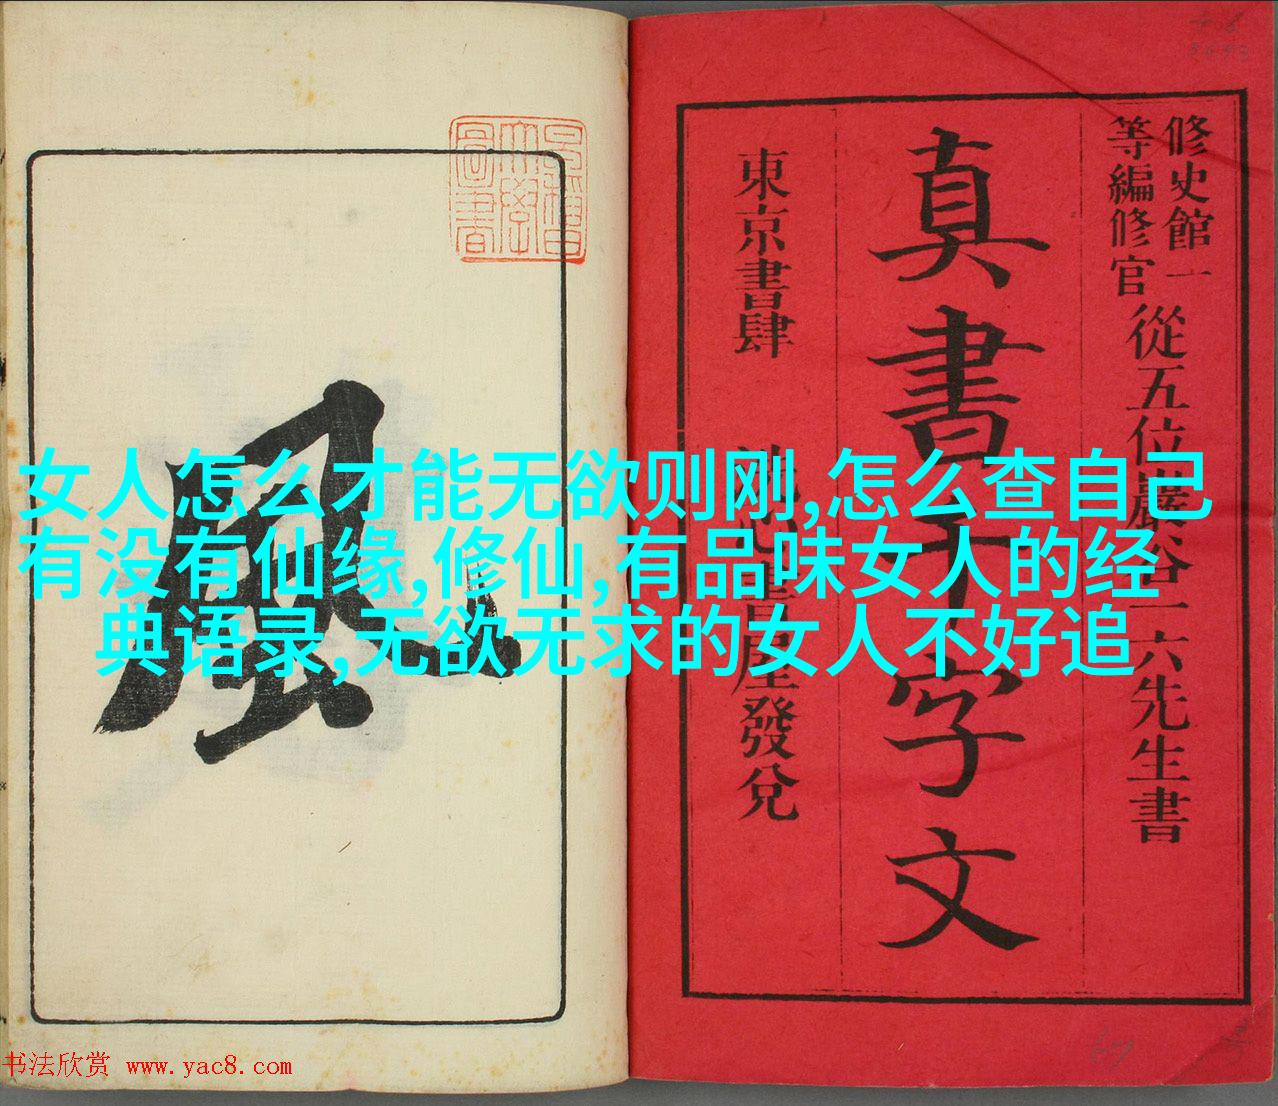 修史館一
等編修官
從五位巖谷一六先生書
真書千字文
東京書肆
屋發兌
風
女人怎么才能无欲则刚,怎么查自己
有没有仙缘,修仙,有品味女人的经
典语录,无欲无求的女人不好追
书法欣赏 www.yac8.com